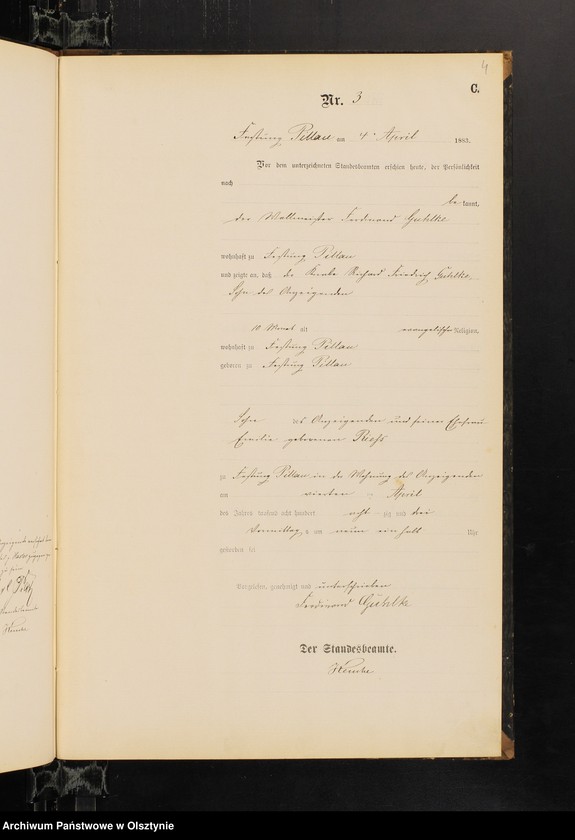 4
C.
Nr. 3
Festung Pillau am 4. April 1883.
Vor dem unterzeichneten Standesbeamten erschien heute, der Persönlichkeit
nach
bekannt,
der Wallmeister Ferdinand Guhlke
wohnhaft zu Festung Pillau
und zeigte an, daß der Knabe Richard Friedrich Guhlke,
Sohn des Anzeigenden
10 Monat alt evangelischer Religion,
wohnhaft zu Festung Pillau
geboren zu Festung Pillau
Sohn des Anzeigenden und seiner Ehefrau
Emilie geborenen Riehs
zu Festung Pillau in der Wohnung des Anzeigenden
am vierten April
des Jahres tausend acht hundert achtzig und drei
Vormittags um neun ein halb Uhr
gestorben sei
Vorgelesen, genehmigt und unterschrieben
Ferdinand Guhlke
Der Standesbeamte.
Archiwum Państwowe w Olsztynie